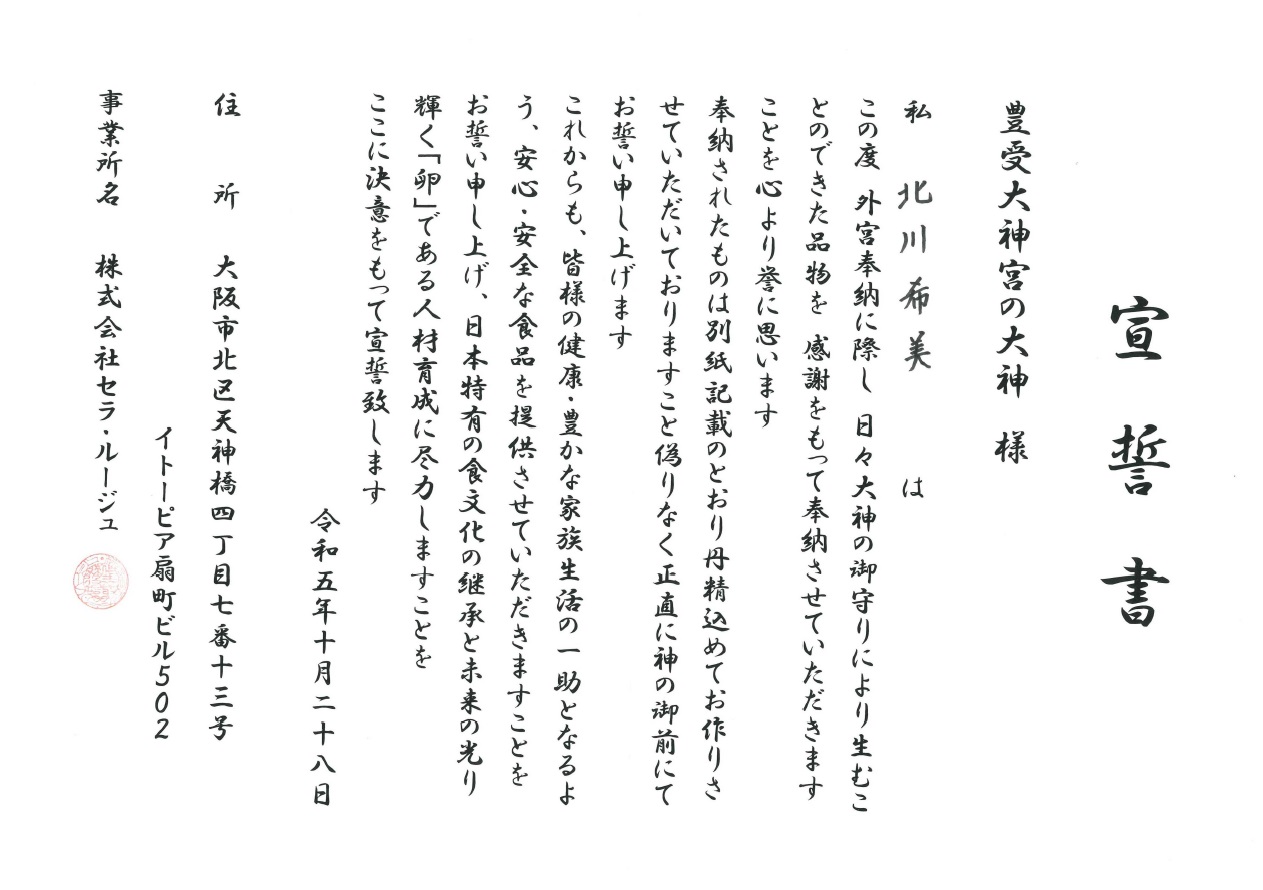 宣誓書
豊受大神宮の大神 様
私 北川希美 は
この度 外宮奉納に際し 日々大神の御守りにより生むこ
とのできた品物を 感謝をもって奉納させていただきます
ことを心より誉に思います
奉納されたものは別紙記載のとおり丹精込めてお作りさ
せていただいておりますこと偽りなく正直に神の御前にて
お誓い申し上げます
これからも、皆様の健康・豊かな家族生活の一助となるよ
う、安心・安全な食品を提供させていただきますことを
お誓い申し上げ、日本特有の食文化の継承と未来の光り
輝く「卵」である人材育成に尽力しますことを
ここに決意をもって宣誓致します
令和五年十月二十八日
住所 大阪市北区天神橋四丁目七番十三号
イトーピア扇町ビル502
事業所名 株式会社セラ・ルージュ